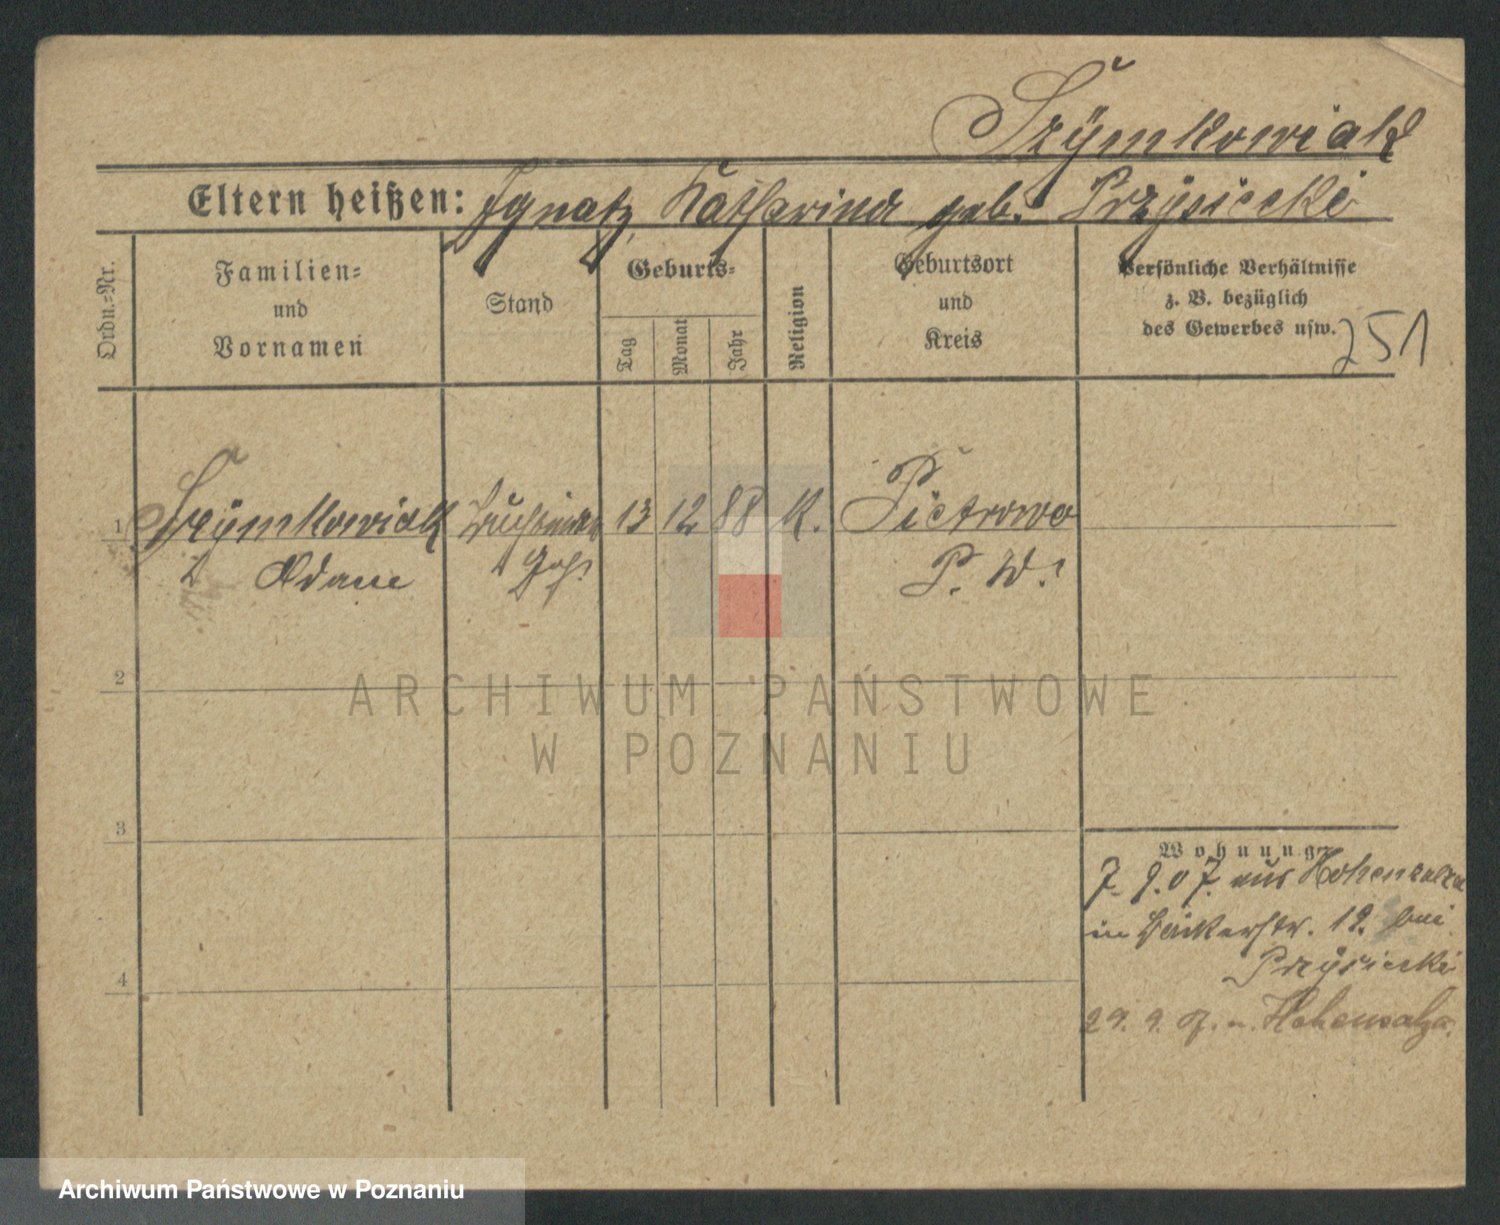 Szÿmkowiak
Eltern heißen: Ignatz Katharina geb. Przÿsiecki
Ordn.=Nr.
Familien=
und
Vornamen
Stand
Geburts=
Tag
Monat
Jahr
Religion
Geburtsort
und
Kreis
Persönliche Verhältnisse
z. B. bezüglich
des Gewerbes usw.
251
1 Szÿmkowiak 13 12 88 K. Pietrowo
Adam P. W.
2
3
4
Wohnung
7. 9. 07. aus Hohensalza
in Bäckerstr. 19. bei
Przÿsiecki
29. 9. 07. n. Hohensalza.
ARCHIWUM PAŃSTWOWE
W POZNANIU
Archiwum Państwowe w Poznaniu